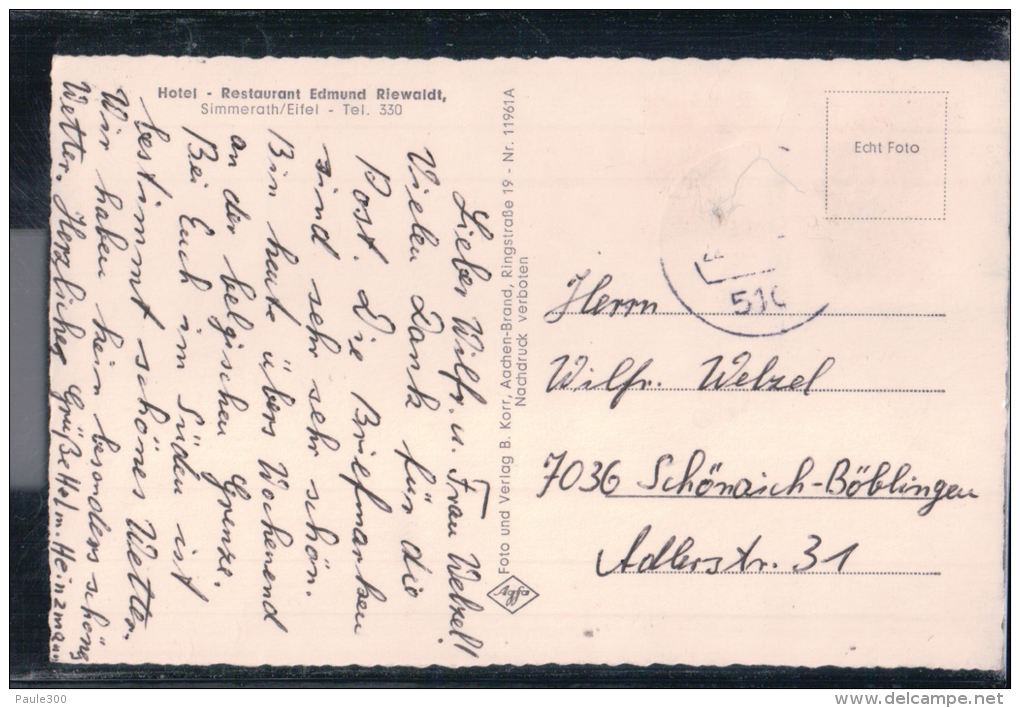 Hotel - Restaurant Edmund Riewaldt,
Simmerath/Eifel - Tel. 330
Lieber Wilfr. u. Frau Welzel!
Vielen Dank für die
Post. Die Briefmarken
sind sehr sehr schön.
Bin heute übers Wochenend
an der belgischen Grenze.
Bei Euch im Süden ist
bestimmt schönes Wetter.
Wir haben kein besonders schön
Wetter. Herzliche Grüße Helm. Heinzmann
Foto und Verlag B. Korr, Aachen-Brand, Ringstraße 19 - Nr. 11961A
Nachdruck verboten
Agfa
Echt Foto
510
Herrn
Wilfr. Welzel
7036 Schönaich-Böblingen
Adlerstr. 31
Paule300
www.delcampe.net